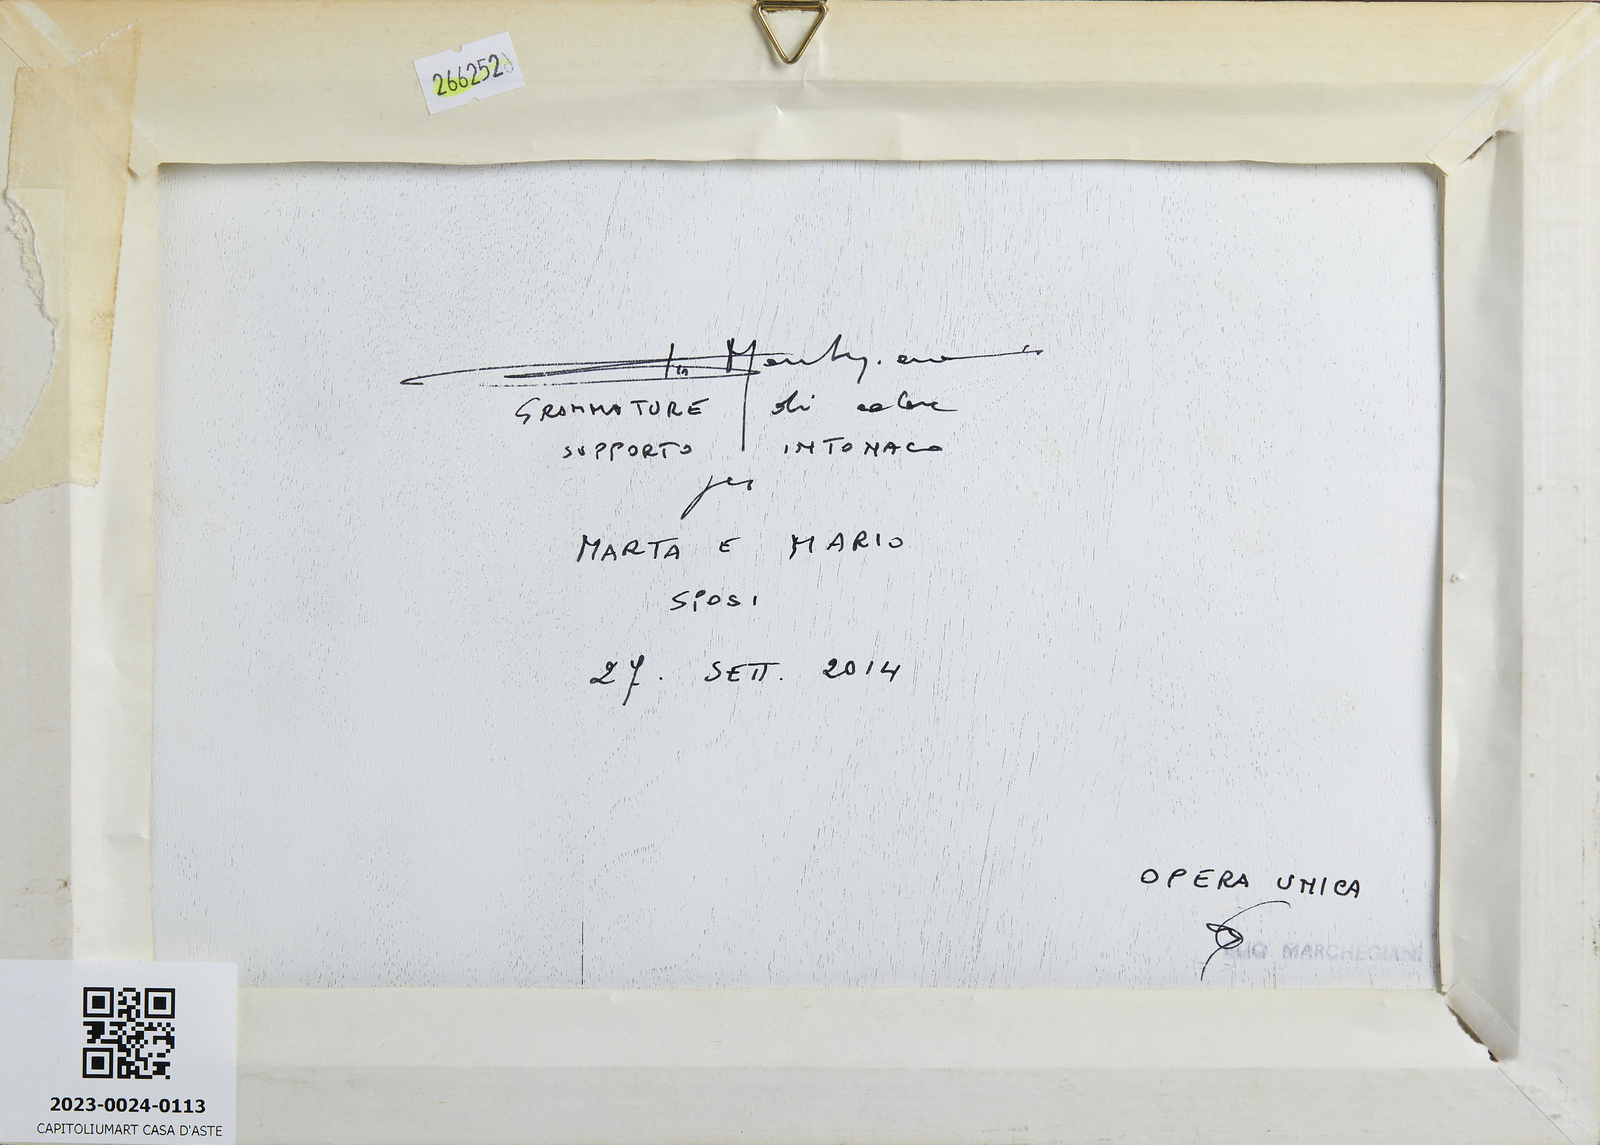 266252
GRAMMATURE di colore
SUPPORTO INTONACO
per
MARTA E MARIO
SPOSI
27. SETT. 2014
OPERA UNICA
ELIO MARCHEGIANI
2023-0024-0113
CAPITOLIUMART CASA D'ASTE